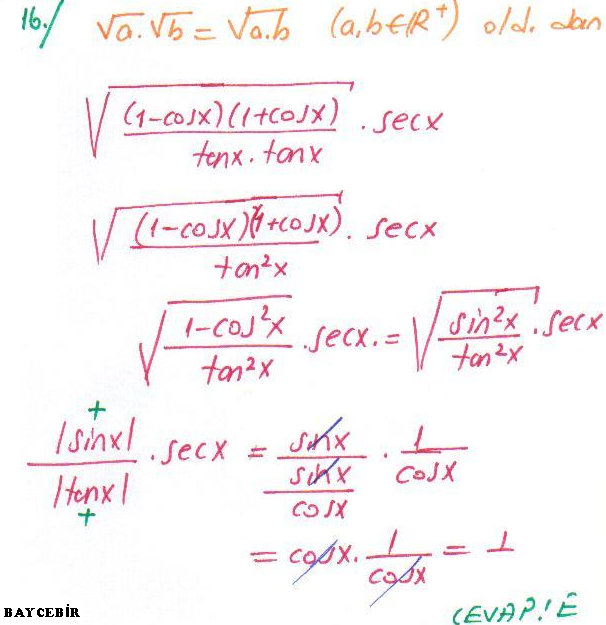 16./ √a.√b = √a.b (a,b∈R⁺) old. dan
√((1-cosx)(1+cosx) / tanx.tanx) . secx
√((1-cosx)(1+cosx) / tan²x) . secx
√(1-cos²x / tan²x) . secx. = √(sin²x / tan²x) . secx
+
|sinx| / |tanx| . secx = sinx / (sinx / cosx) . 1 / cosx
+
= cosx . 1 / cosx = 1
BAYCEBİR
CEVAP: E